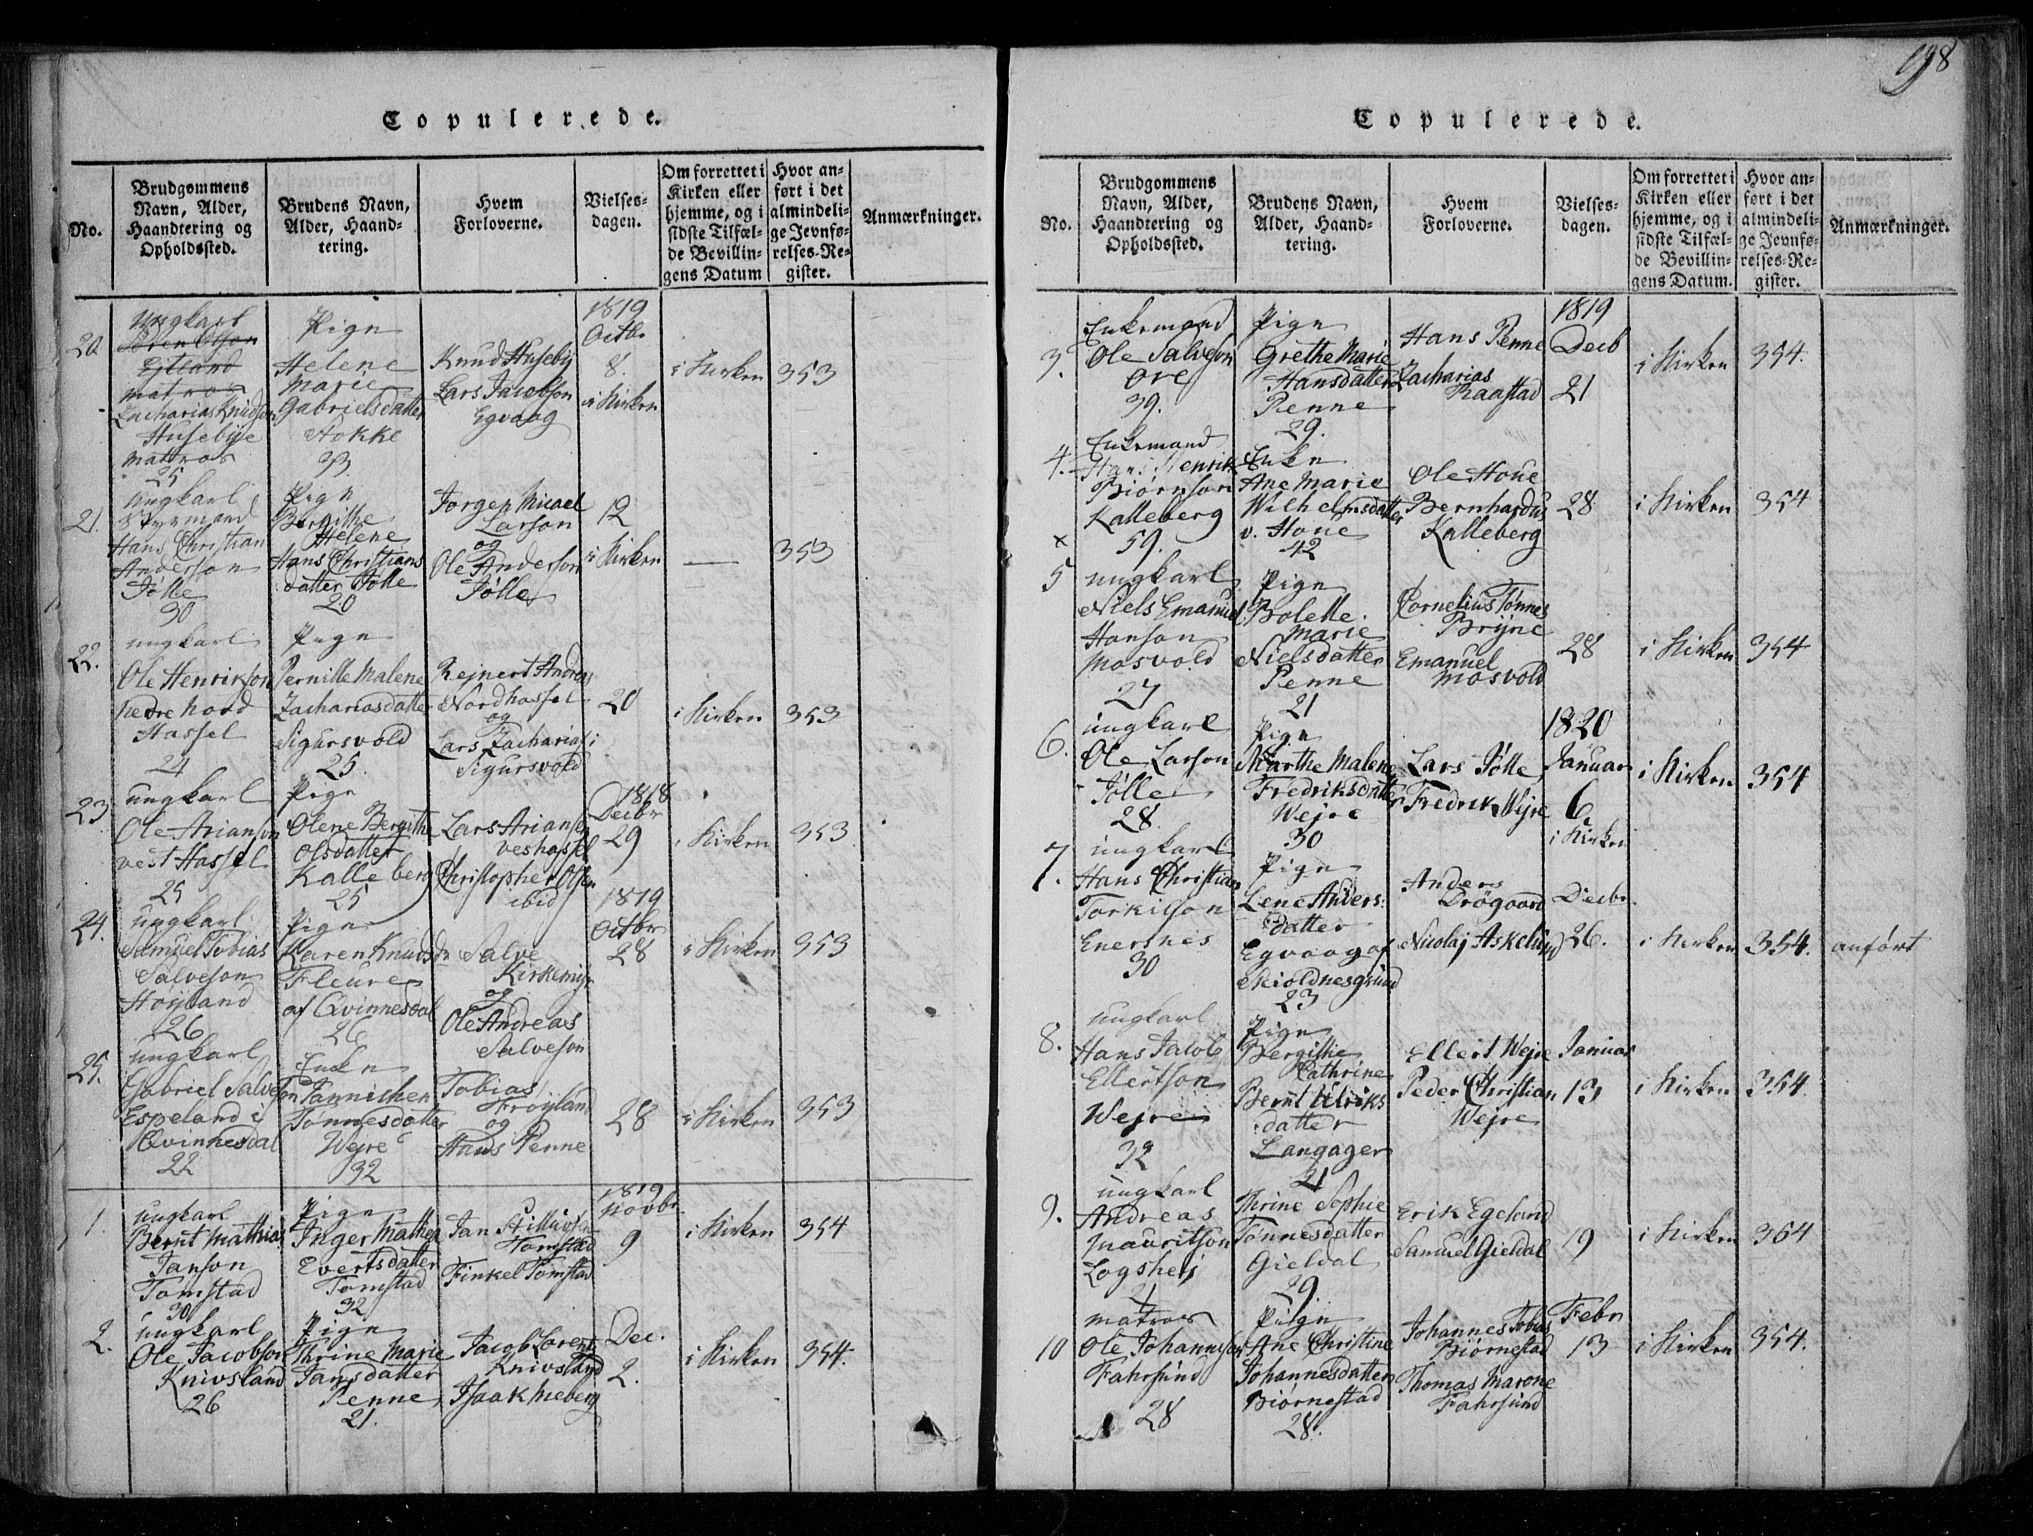 Copulerede.
No.
Brudgommens
Navn, Alder,
Haandtering og
Opholdssted.
Brudens Navn,
Alder, Haand-
tering.
Hvem
Forloverne.
Vielses-
dagen.
Om forrettet i
Kirken eller
hjemme, og i
sidste Tilfæl-
de Bevillin-
gens Datum
Hvor an-
ført i det
almindeli-
ge Jevnfø-
relses-Re-
gister.
Anmærkninger.
20
Ungkarl
Søren Olson
Eitland
matros
Zacharias Knudson
Husebye
matros
25
Pige
Helene
Marie
Gabrielsdatter
Stokke
33
Knud Huseby
Lars Jacobson
Egvaag
1819
Octbr
8.
i Kirken
i Kirken
353
21.
Ungkarl
Styrmand
Hans Christian
Anderson
Jølle
30
Pige
Bergithe
Helene
Hans Christians
datter Jølle
20
Jørgen Micael
Larson
og
Ole Anderson
Jølle
12
i Kirken
353
22.
ungkarl
Ole Henrikson
nedre Nord
Hassel
24
Pige
Pernille Malene
Zachariasdatter
Sigursvold
25.
Rejnert Andreas
Nordhassel
og
Lars Zacharias
Sigursvold
20
i Kirken
353
23
ungkarl
Ole Arianson
vest Hassel
25
Pige
Olene Bergithe
Olsdatter
Kalleberg
25
Lars Ariansen
veshassel
Christopher Olsen
ibid
1818
Decbr
29
i Kirken
353
24.
ungkarl
Samuel Tobias
Salveson
Høyland
26
Pige
Karen Knudsdr
Fleure
af Qvinnesdal
26
Salve
Kirkemyr
og
Ole Andreas
Salveson
1819
Octbr
28
i Kirken
353
25.
ungkarl
Gabriel Salveson
Espeland i
Qvinnesdal
22
Enke
Tannichen
Tønnesdatter
Wejre
32
Tobias
Frøyland
og
Hans Penne
28
i Kirken
353
1.
ungkarl
Bernt Mathias
Janson
Tomstad
30
Pige
Inger Mathea
Evertsdatter
Tomstad
32
Jan
Tomstad
Finkel Tomstad
1819
Novbr
9
i Kirken
354
2.
ungkarl
Ole Jacobson
Knivsland
26
Pige
Thrine Marie
Jansdatter
Penne
21.
Jacob Lorent
Knivsland
Isaak Meberg
Dec.
2.
i Kirken
354.
198
Copulerede.
No.
Brudgommens
Navn, Alder,
Haandtering og
Opholdssted.
Brudens Navn,
Alder, Haand-
tering.
Hvem
Forloverne.
Vielses-
dagen.
Om forrettet i
Kirken eller
hjemme, og i
sidste Tilfæl-
de Bevillin-
gens Datum.
Hvor an-
ført i det
almindeli-
ge Jevnfø-
relses-Re-
gister.
Anmærkninger.
3.
Enkemand
Ole Salveson
Ore
39.
Pige
Grethe Marie
Hansdatter
Penne
29.
Hans Penne
Zacharias
Raastad
1819
Decb
21
i Kirken
354.
4.
Enkemand
Hans Henrik
Biørnson
Kalleberg
59.
Enke
Ane Marie
Wilhelmsdatter
v. Houe
42
Ole Houe
Bernhardus
Kalleberg
28
i Kirken
354
x
5
ungkarl
Niels Emanuel
Hanson
Mosvold
27
Pige
Bolette
Marie
Nielsdatter
Penne
21
Cornelius Tønnes
Bryne
Emanuel
Mosvold
28
i Kirken
354
6.
ungkarl
Ole Larson
Jølle
28.
Pige
Marthe Malene
Fredriksdatter
Wejre
30
Lars Jølle
Fredrik Wejre
1820
Januar
6.
i Kirken
i Kirken
354
7.
ungkarl
Hans Christian
Torkilson
Enersnes
30
Pige
Lene Anders:
datter
Egvaag af
Skioldnesgrund
23
Anders
Drøgaard
Nicolaj Askelund
Decbr.
26.
i Kirken
354.
anført
8.
ungkarl
Hans Jacob
Ellertson
Wejre
32
Pige
Bergithe
Cathrine
Bernt Ulriks
datter
Langager
21
Ellert Wejre
Peder Christian
Wejre
Januar
13
i Kirken
354.
9.
ungkarl
Andreas
Mauritson
Logshei
21
Thrine Sophie
Tønnesdatter
Gieldal
29.
Erik Egeland
Samuel Gieldal
19
i Kirken
364
10
matros
Ole Johanneson
Fahrsund
28
Pige
Ane Christine
Johannesdatter
Biørnestad
28.
Johannes Tobias
Biørnestad
Thomas Marone
Fahrsund
Febr
13
i Kirken
354.